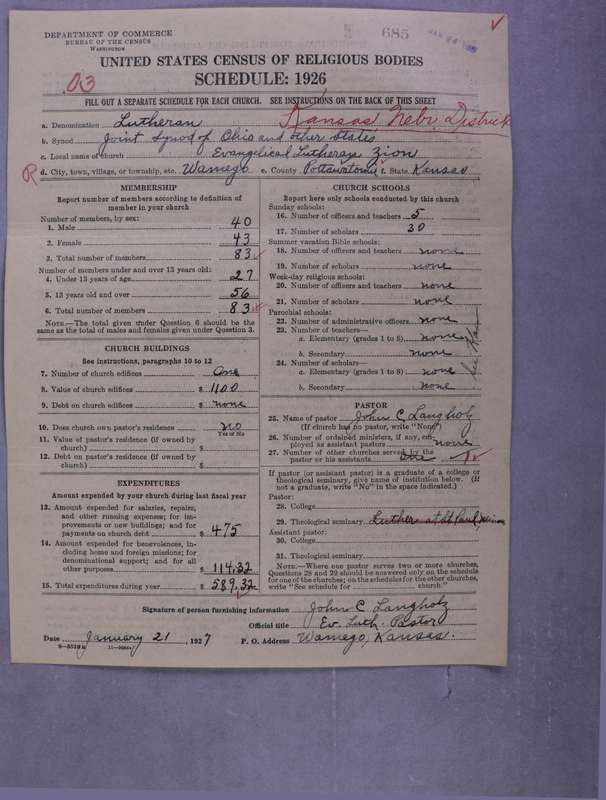 DEPARTMENT OF COMMERCE
BUREAU OF THE CENSUS
WASHINGTON
685
UNITED STATES CENSUS OF RELIGIOUS BODIES
SCHEDULE: 1926
03
FILL OUT A SEPARATE SCHEDULE FOR EACH CHURCH. SEE INSTRUCTIONS ON THE BACK OF THIS SHEET
Kansas, Nebr. District
a. Denomination Lutheran
b. Synod Joint Synod of Ohio and other States
c. Local name of church Evangelical Lutheran Zion
R d. City, town, village, or township, etc. Wamego e. County Pottawatomie f. State Kansas
MEMBERSHIP
Report number of members according to definition of
member in your church
Number of members, by sex:
1. Male 40
2. Female 43
3. Total number of members 83
Number of members under and over 13 years old:
4. Under 13 years of age 27
5. 13 years old and over 56
6. Total number of members 83
NOTE.—The total given under Question 6 should be the
same as the total of males and females given under Question 3.
CHURCH BUILDINGS
See instructions, paragraphs 10 to 12
7. Number of church edifices One
8. Value of church edifices $ 1100
9. Debt on church edifices $ none
10. Does church own pastor's residence? no
Yes or No
11. Value of pastor's residence (if owned by
church) $
12. Debt on pastor's residence (if owned by
church) $
EXPENDITURES
Amount expended by your church during last fiscal year
13. Amount expended for salaries, repairs,
and other running expenses; for im-
provements or new buildings; and for
payments on church debt $ 475
14. Amount expended for benevolences, in-
cluding home and foreign missions; for
denominational support; and for all
other purposes $ 114.32
15. Total expenditures during year $ 589.32
CHURCH SCHOOLS
Report here only schools conducted by this church
Sunday schools:
16. Number of officers and teachers 5
17. Number of scholars 30
Summer vacation Bible schools:
18. Number of officers and teachers none
19. Number of scholars none
Week-day religious schools:
20. Number of officers and teachers none
21. Number of scholars none
Parochial schools:
22. Number of administrative officers none
23. Number of teachers—
a. Elementary (grades 1 to 8) none
b. Secondary none
24. Number of scholars—
a. Elementary (grades 1 to 8) none
b. Secondary none
PASTOR
25. Name of pastor John C. Langholz
(If church has no pastor, write "None")
26. Number of ordained ministers, if any, em-
ployed as assistant pastors none
27. Number of other churches served by the
pastor or his assistants one
If pastor (or assistant pastor) is a graduate of a college or
theological seminary, give name of institution below. (If
not a graduate, write "No" in the space indicated.)
Pastor:
28. College
29. Theological seminary Luther at St Paul, Minn
Assistant pastor:
30. College
31. Theological seminary
NOTE.—Where one pastor serves two or more churches,
Questions 28 and 29 should be answered only on the schedule
for one of the churches; on the schedules for the other churches,
write "See schedule for church."
Signature of person furnishing information John C Langholz
Official title Ev. Luth. Pastor
Date January 21, 1927 P. O. Address Wamego, Kansas.